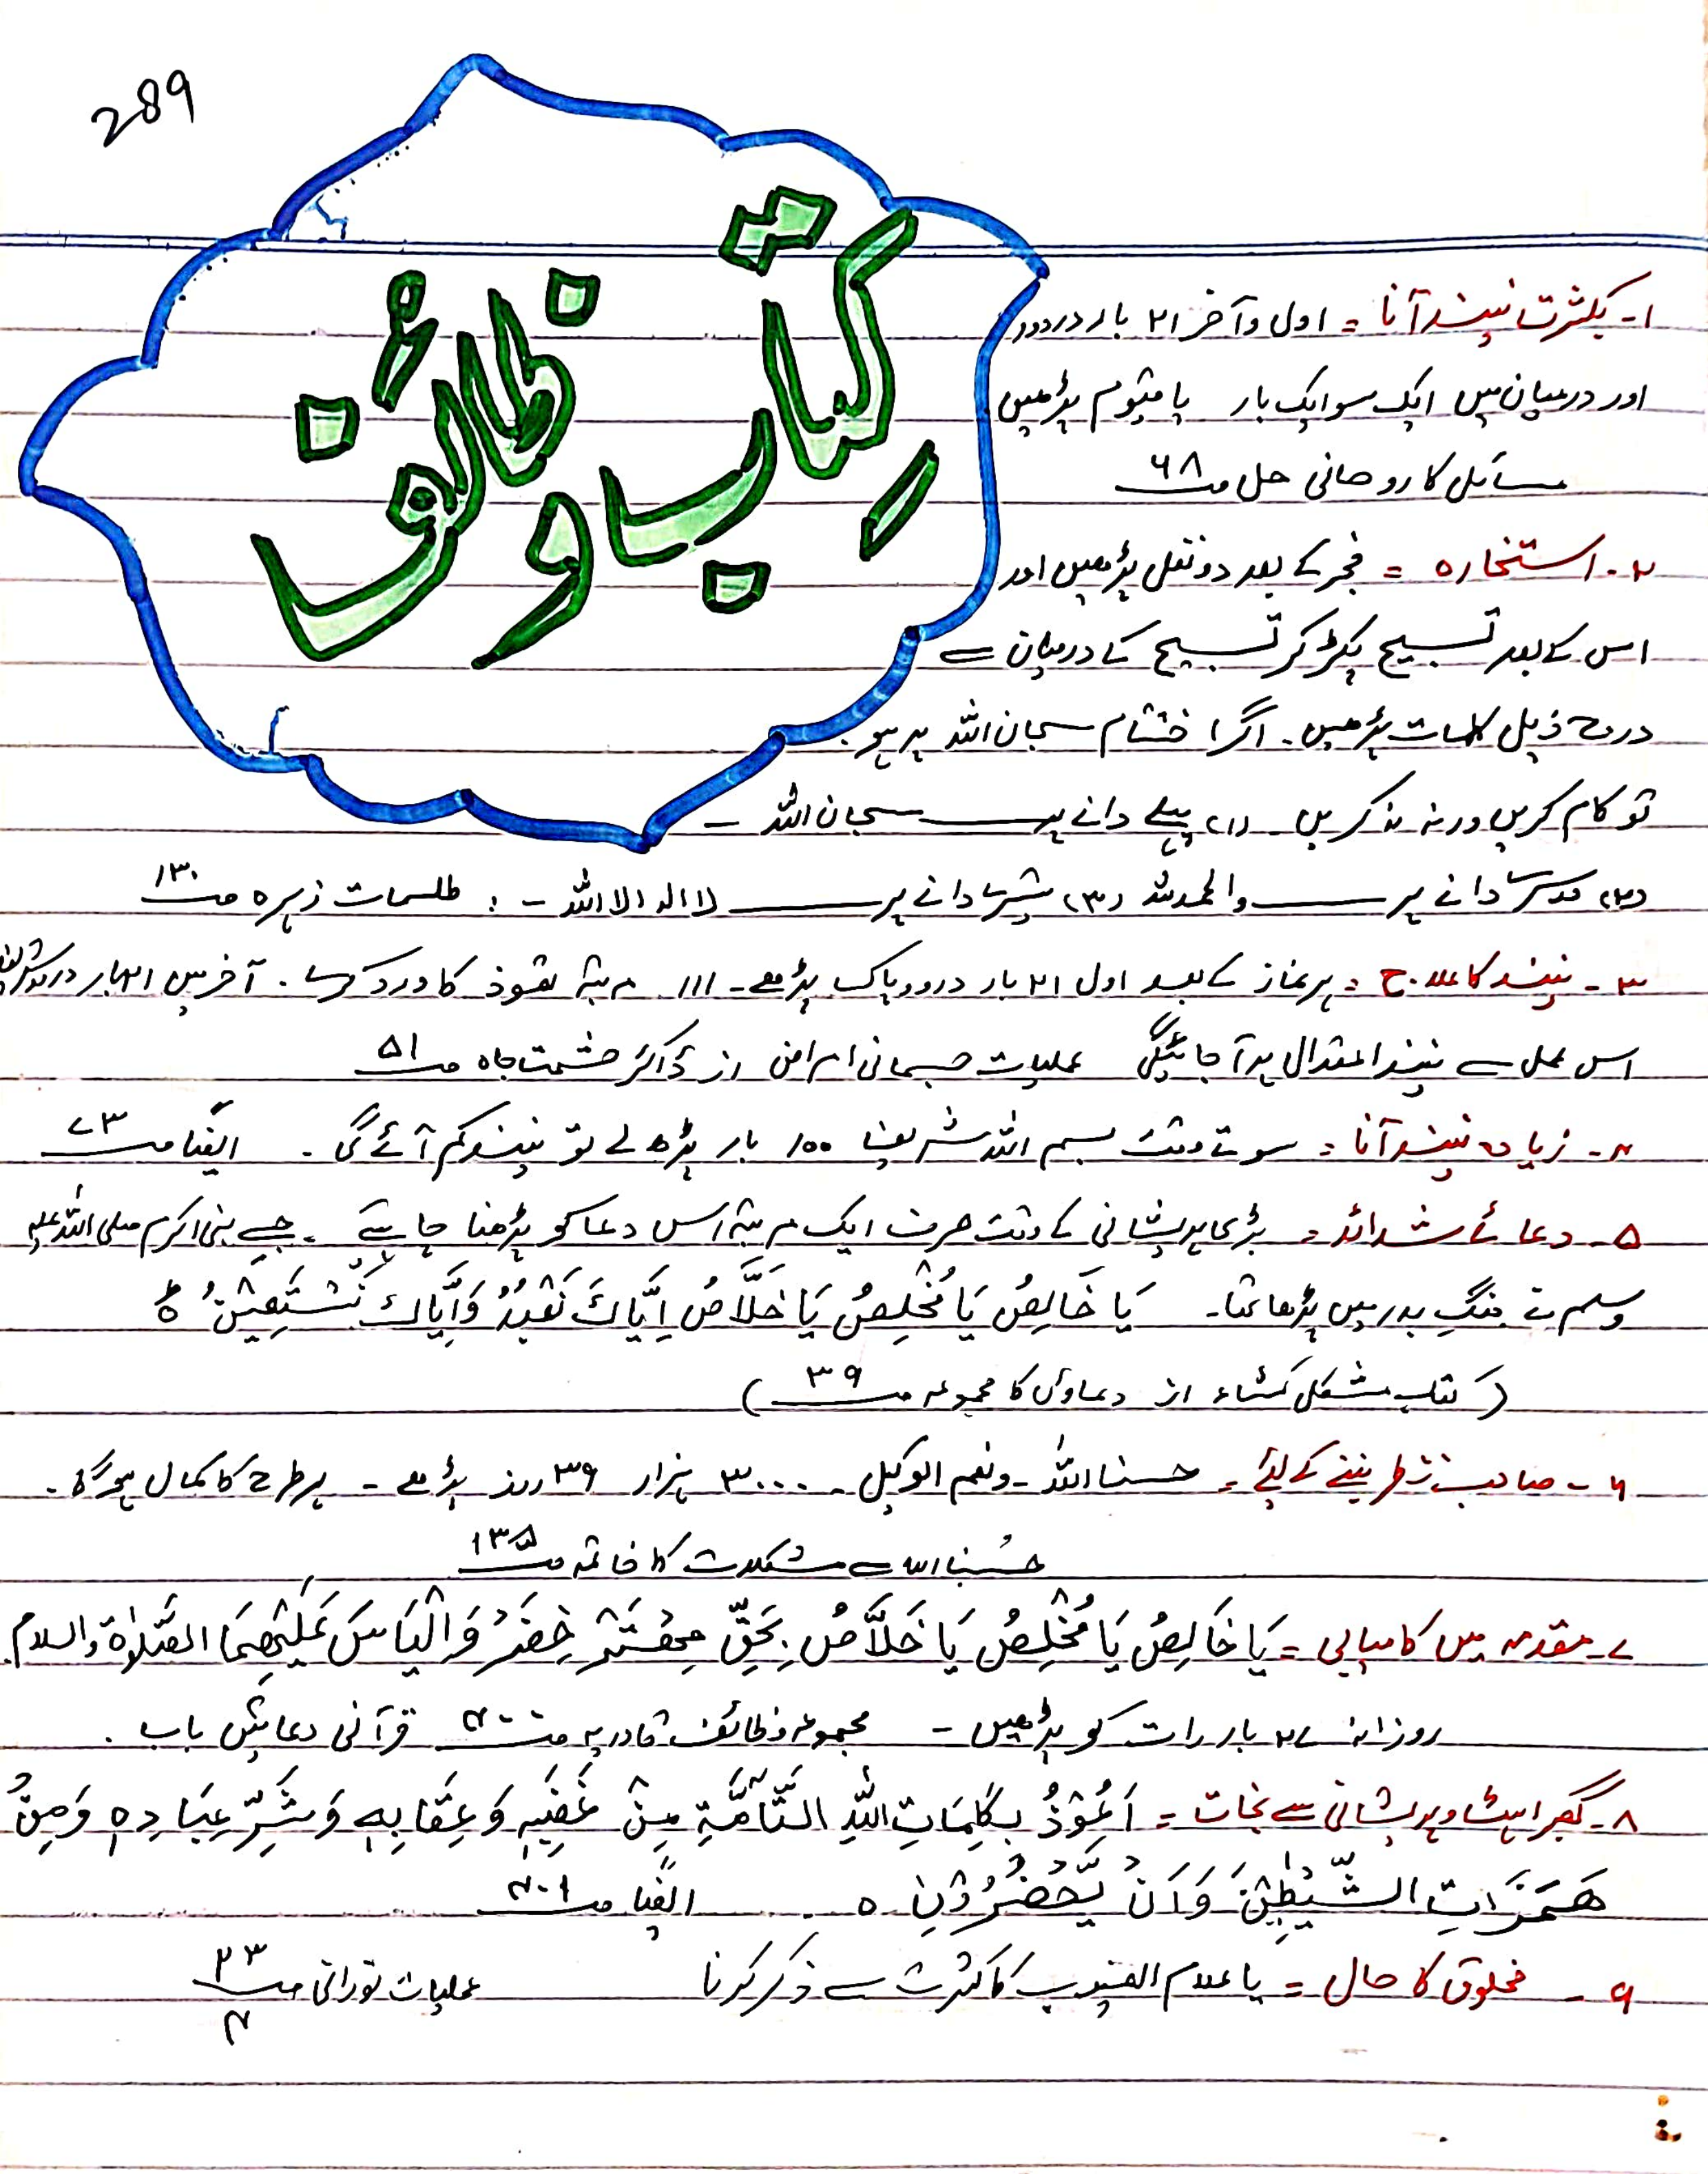 289
کتاب وظائف
۱- بکثرت نیند آنا = اول و آخر ۲۱ بار درود
اور درمیان میں ایک سو ایک بار یا قیوم پڑھیں
مسائل کا روحانی حل صـ ۶۸
۲- استخارہ = فجر کے بعد دو نفل پڑھیں اور
اس کے بعد تسبیح پکڑ کر تسبیح کے درمیان سے
درج ذیل کلمات پڑھیں۔ اگر اختتام سبحان اللہ پر ہو
تو کام کریں ورنہ نہ کریں (۱) پہلے دانے پر سبحان اللہ -
(۲) دوسرے دانے پر والحمدللہ (۳) تیسرے دانے پر لا الہ الا اللہ - : طلسمات زہرہ صـ ۱۳۰
۳- نیند کا علاج = ہر نماز کے بعد اول ۲۱ بار درود پاک پڑھے - ۱۱۱ مرتبہ تعوذ کا ورد کرے . آخر میں ۲۱ بار درود شریف
اس عمل سے نیند اعتدال پر آ جائیگی عملیات جسمانی امراض از ڈاکٹر حشمت جاہ صـ ۵۱
۴- زیادہ نیند آنا = سوتے وقت بسم اللہ شریف ۱۰۰ بار پڑھ لے تو نیند کم آئے گی - ایضاً صـ ۷۳
۵- دعائے شدائد = بڑی پریشانی کے وقت صرف ایک مرتبہ اس دعا کو پڑھنا چاہیے - جسے نبی اکرم صلی اللہ علیہ
وسلم نے جنگِ بدر میں پڑھا تھا - یَا خَالِصُ یَا مُخْلِصُ یَا خَلَّاصُ اِیَّاكَ نَعْبُدُ وَاِیَّاكَ نَسْتَعِیْنُ ۵
(کتاب مشکل کشاء از دعاؤں کا مجموعہ صـ ۳۹)
۶- صاحب نظر بننے کے لئے = حسبنا اللہ - ونعم الوکیل - ۳۰۰۰ ہزار ۳۹ روز پڑھے - ہر طرح کا کمال ہوگا -
حسبنا اللہ سے مشکلات کا خاتمہ صـ ۱۳۵
۷- مقدمہ میں کامیابی = یَا خَالِصُ یَا مُخْلِصُ یَا خَلَّاصُ بِحَقِّ خِضَرْ وَالْیَاسَ عَلَیْهِمَا الصَّلٰوۃ والسلام
روزانہ ۲۷ بار رات کو پڑھیں - مجموعہ وظائف قادریہ صـ ۴۰۰ قرآنی دعائیں باب .
۸- گھبراہٹ و پریشانی سے نجات = اَعُوْذُ بِکَلِمَاتِ اللّٰہِ التَّآمَّۃِ مِنْ غَضَبِہٖ وَعِقَابِہٖ وَشَرِّ عِبَادِہٖ وَمِنْ
هَمَزَاتِ الشَّیٰطِیْنِ وَاَنْ یَّحْضُرُوْنِ ۵ ایضاً صـ ۴۰۱
۹- مخلوق کا حال = یا علام الغیوب کا کثرت سے ذکر کرنا عملیات نورانی صـ ۲۳
۴